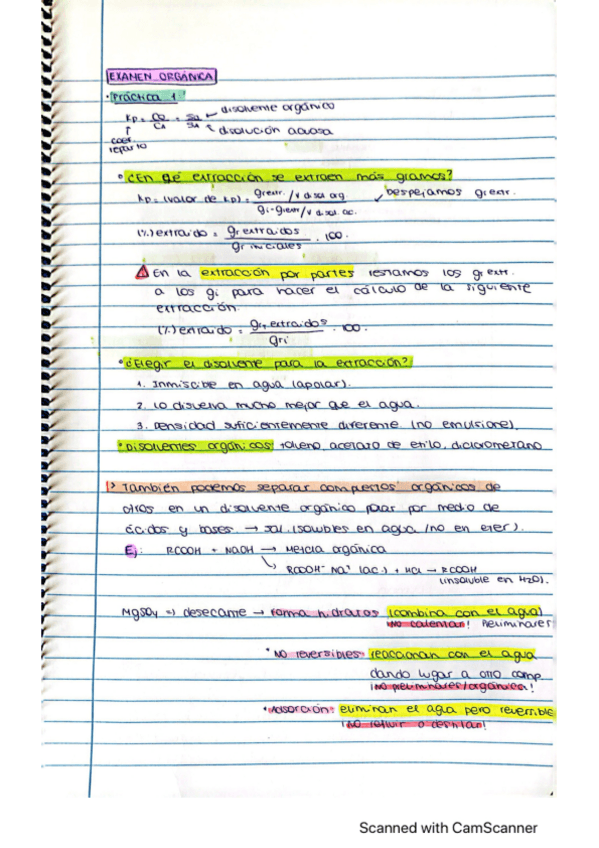 EXAMEN ORGÁNICA
• Práctica 1
Kp = Co/CA = So/SA ← disolvente orgánico
← disolución acuosa
↑
coef.
reparto
• ¿En qé extracción se extraen más gramos?
Kp = (valor de Kp) = grextr. / v disol. org. / gi - grextr / v disol. ac. ✓ Despejamos gr extr.
(%) extraido = gr extraidos / gr iniciales . 100.
⚠ En la extracción por partes restamos los gr extr.
a los gi para hacer el cálculo de la siguiente
extracción.
(%) extraido = gr, extraidos / gri . 100.
• ¿Elegir el disolvente para la extracción?
1. Inmiscible en agua (apolar).
2. Lo disuelva mucho mejor que el agua.
3. Densidad suficientemente diferente (no emulsione).
• Disolventes orgánicos: tolueno, acetato de etilo, diclorometano
> También podemos separar compuestos orgánicos de
otros en un disolvente orgánico polar por medio de
ácidos y bases. → sal. (solubles en agua /no en eter).
Ej: RCOOH + NaOH → Mezcla orgánica
↳ RCOOH⁻ Na⁺ (ac.) + HCl → RCOOH
(insoluble en H₂O).
MgSO₄ => desecante → forma hidratos (combina con el agua)
¡NO calentar! Preliminares
• NO reversibles: reaccionan con el agua
dando lugar a otro comp.
¡NO preliminares/orgánica!
• Adsorción: eliminan el agua pero reversible
¡NO refluir o destilar!
Scanned with CamScanner